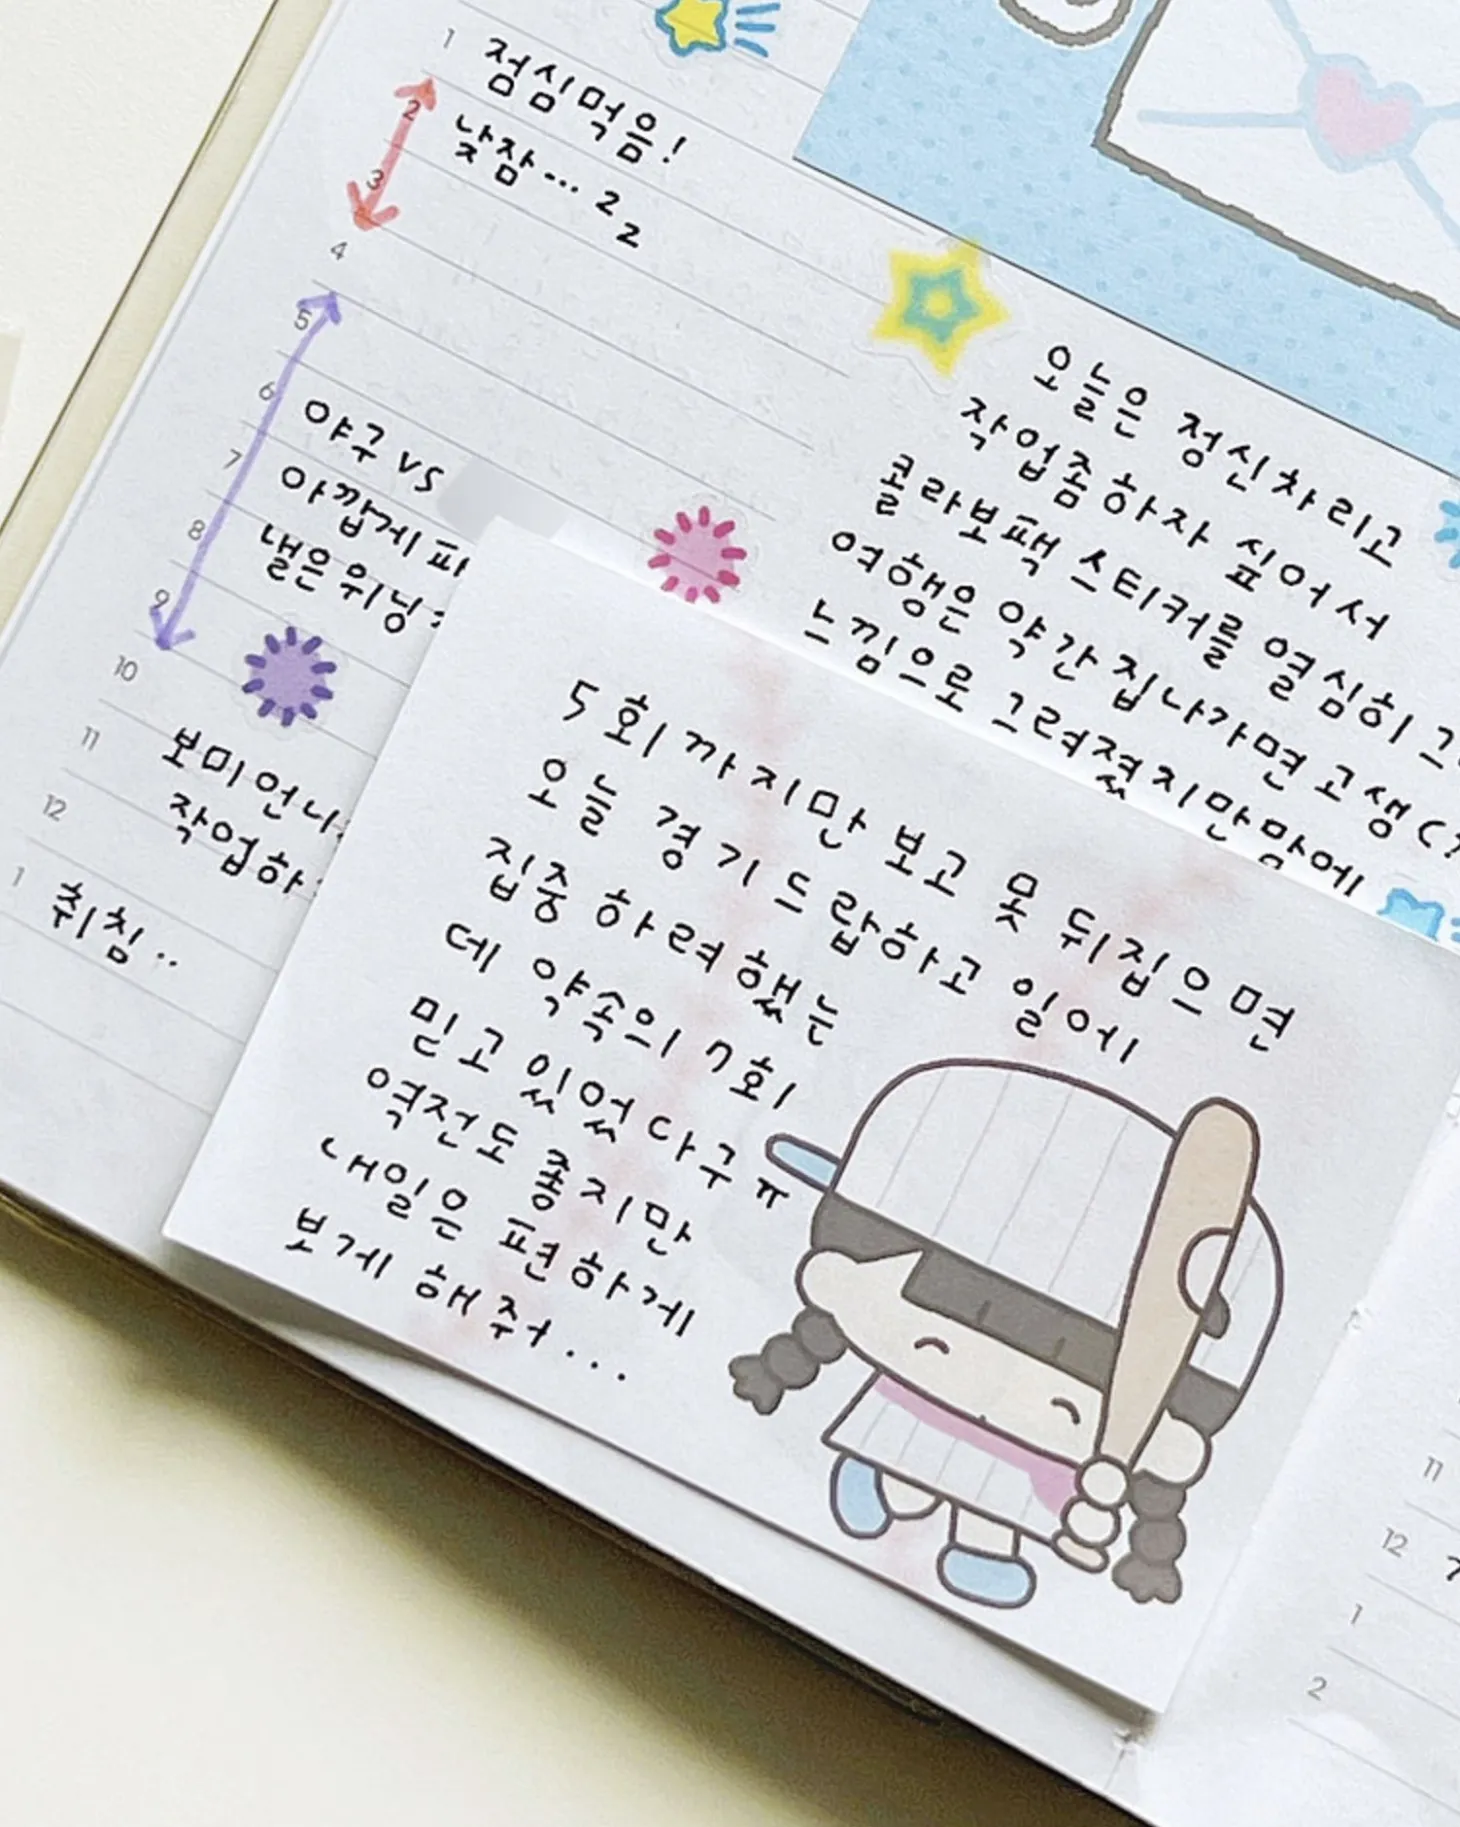 1 점심먹음!
2 낮잠... z
z
3
4
5
6 야구 vs
7 아깝게 패
8 낼은 위닝
9
10
11 보미언니
12 작업하
1 취침..
오늘은 정신차리고
작업좀하자 싶어서
콜라보팩 스티커를 열심히 그
여행은 약간 집나가면 고생(?
느낌으로 그려졌지만 맘에
5회까지만 보고 못 뒤집으면
오늘 경기 드랍하고 일에
집중 하려했는
데 약속의 7회
믿고 있었다구ㅠ
역전도 좋지만
내일은 편하게
보게 해줘...
11
12
1
2